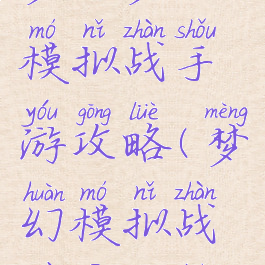 mó nǐ zhàn shǒu
模拟战手
yóu gōng lüè mèng
游攻略(梦
huàn mó nǐ zhàn
幻模拟战